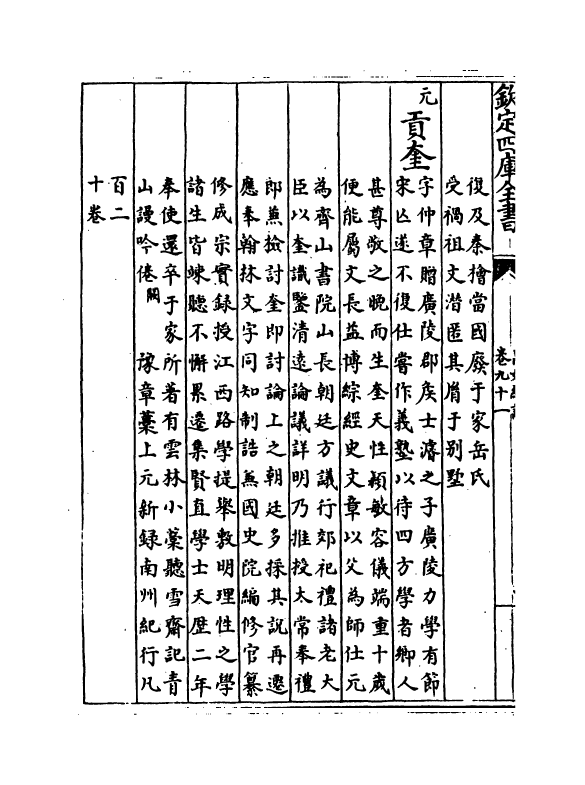 欽定四庫全書
卷九十一
復及秦檜當國廢于家岳氏
受禍祖文潛匿其于别墅
元
貢奎
字仲章贈廣陵郡侯士濬之子廣陵力學有節
宋亡遂不復仕嘗作義塾以待四方學者鄉人
甚尊敬之晚而生奎天性穎敏容儀端重十歲
便能屬文長益博綜經史文章以父為師仕元
為齊山書院山長朝廷方議行郊祀禮諸老大
臣以奎識鑒清遠論議詳明乃推授太常奉禮
郎兼檢討奎即討論上之朝廷多採其說再遷
應奉翰林文字同知制誥兼國史院編修官纂
修成宗實録授江西路學提舉敷明理性之學
諸生皆竦聽不懈累遷集賢直學士天厯二年
奉使還卒于家所著有雲林小藁聽雪齋記青
山謾吟倦闕　豫章藁上元新録南州紀行凡
百二
十卷